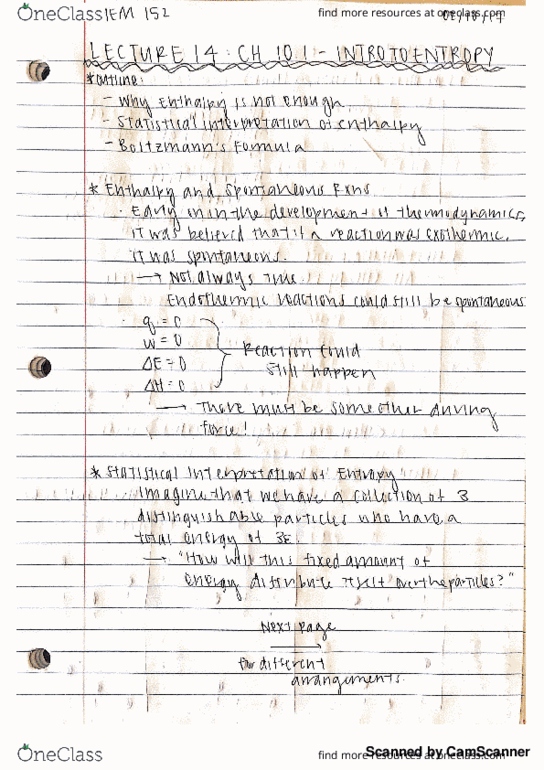 OneClass
CHEM 152
find more resources at oneclass.com
LECTURE 14: CH 10.1 - INTRO TO ENTROPY
* Outline:
- Why Enthalpy is not enough
- Statistical interpretation of enthalpy
- Boltzmann's Formula
* Enthalpy and Spontaneous Rxns
· Early on in the development of thermodynamics,
it was believed that if a reaction was exothermic,
it was spontaneous.
→ Not always true.
Endothermic reactions could still be spontaneous
q = 0
w = 0
ΔE = 0
ΔH = 0
Reaction could
still happen
→ There must be some other driving
force!
* Statistical Interpretation of Entropy
Imagine that we have a collection of 3
distinguishable particles who have a
total energy of 3E.
→ "How will this fixed amount of
energy distribute itself over the particles?"
Next page
→
for different
arrangements.
OneClass
find more resources at oneclass.com
Scanned by CamScanner